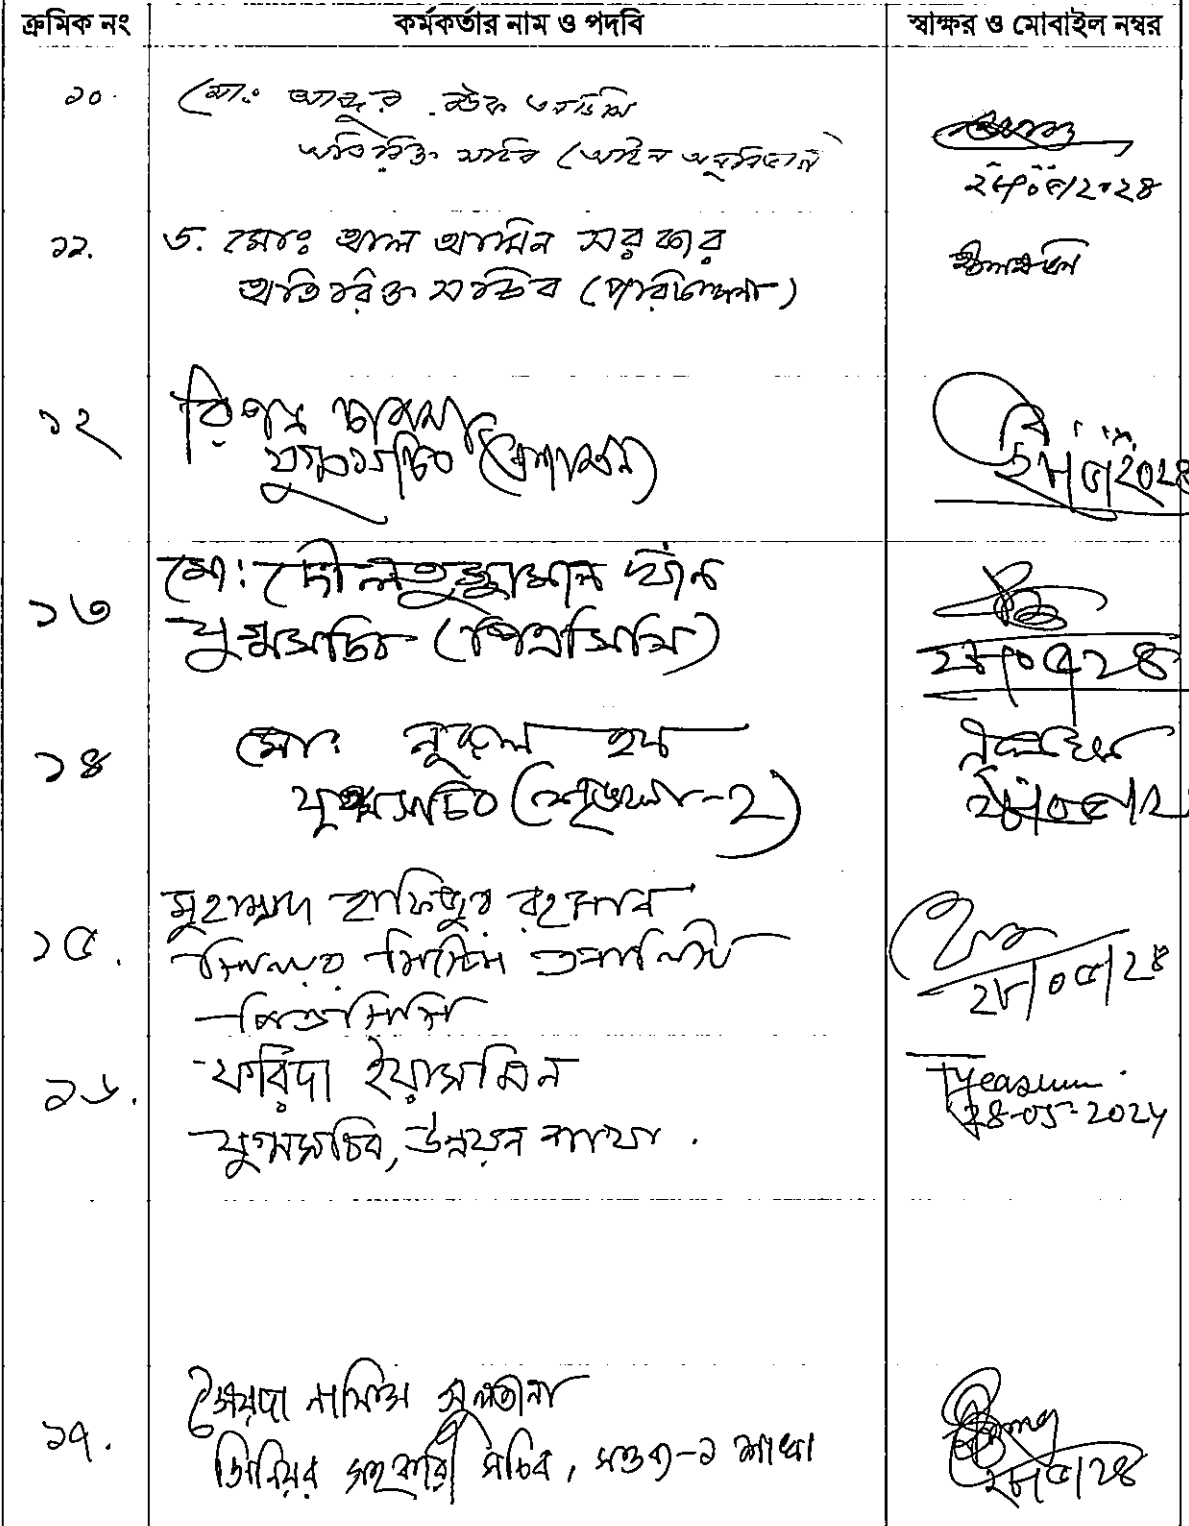 ক্রমিক নং কর্মকর্তার নাম ও পদবি স্বাক্ষর ও মোবাইল নম্বর
১০. মোঃ আব্দুর রউফ এনডিসি
অতিরিক্ত সচিব (আইন অনুবিভাগ)
২৮/০৫/২০২৪
১১. ড. মোঃ আল আমিন সরকার
অতিরিক্ত সচিব (পরিচালনা)
১২ বিপন্ন চাকমা
যুগ্মসচিব (প্রশাসন)
২৮/৫/২০২৪
১৩ মো: দৌলতুজ্জামান খাঁন
যুগ্মসচিব (পিএসিসি)
২৮/০৫/২৪
১৪ মোঃ নুরুল হক
যুগ্মসচিব (শৃঙ্খলা-২)
২৮/০৫/২
১৫. মুহাম্মদ হাফিজুর রহমান
সিনিয়র সিস্টেম এনালিস্ট
২৮/০৫/২৪
১৬. ফরিদা ইয়াসমিন
যুগ্মসচিব, উন্নয়ন শাখা.
Fyeasmin
28-05-2024
১৭. সৈয়দা নাফিস সুলতানা
সিনিয়র সহকারী সচিব, সওব্য-১ শাখা
২৮/৫/২৪